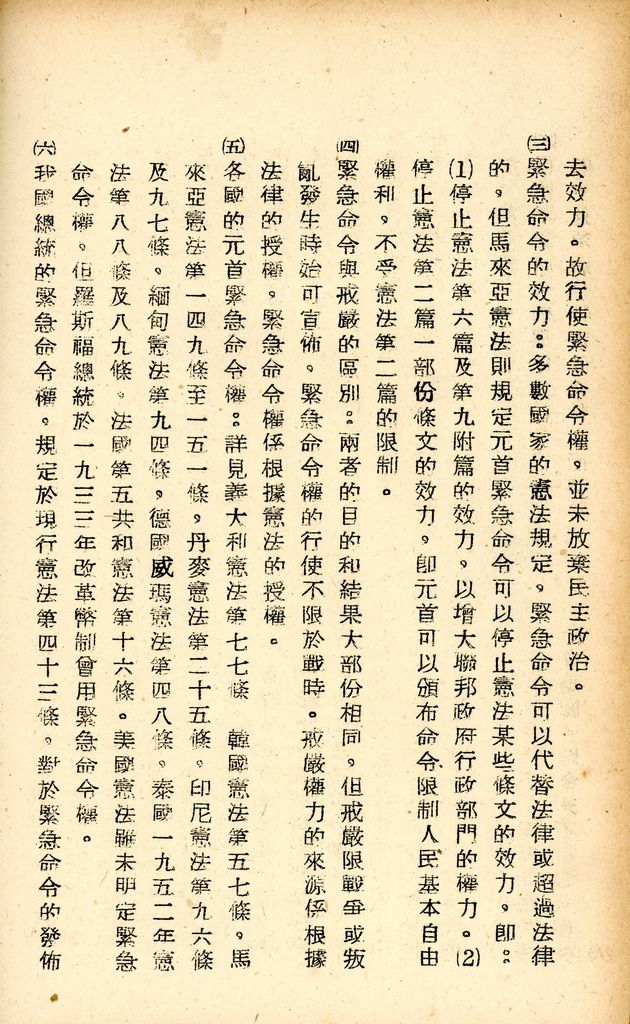 去效力。故行使緊急命令權,並未放棄民主政治。
㈢緊急命令的效力:多數國家的憲法規定,緊急命令可以代替法律或超過法律
的,但馬來亞憲法則規定元首緊急命令可以停止憲法某些條文的效力,即:
⑴停止憲法第六篇及第九附篇的效力,以增大聯邦政府行政部門的權力。⑵
停止憲法第二篇一部份條文的效力,即元首可以頒布命令限制人民基本自由
權利,不受憲法第二篇的限制。
㈣緊急命令與戒嚴的區別:兩者的目的和結果大部份相同,但戒嚴限戰爭或叛
亂發生時始可宣佈,緊急命令權的行使不限於戰時。戒嚴權力的來源係根據
法律的授權,緊急命令權係根據憲法的授權。
㈤各國的元首緊急命令權:詳見義大利憲法第七七條 韓國憲法第五七條,馬
來亞憲法第一四九條至一五一條,丹麥憲法第二十五條,印尼憲法第九六條
及九七條,緬甸憲法第九四條,德國威瑪憲法第四八條,泰國一九五二年憲
法第八八條及八九條,法國第五共和憲法第十六條。美國憲法雖未明定緊急
命令權,但羅斯福總統於一九三三年改革幣制曾用緊急命令權。
㈥我國總統的緊急命令權,規定於現行憲法第四十三條,對於緊急命令的發佈